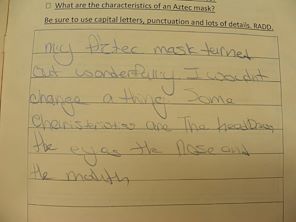 □ What are the characteristics of an Aztec mask?
Be sure to use capital letters, punctuation and lots of details. RADD.
my Aztec mask turned
out wonderfully I wouldnt
change a thing. Some
are The headDress
the eyes the Nose and
the mouth